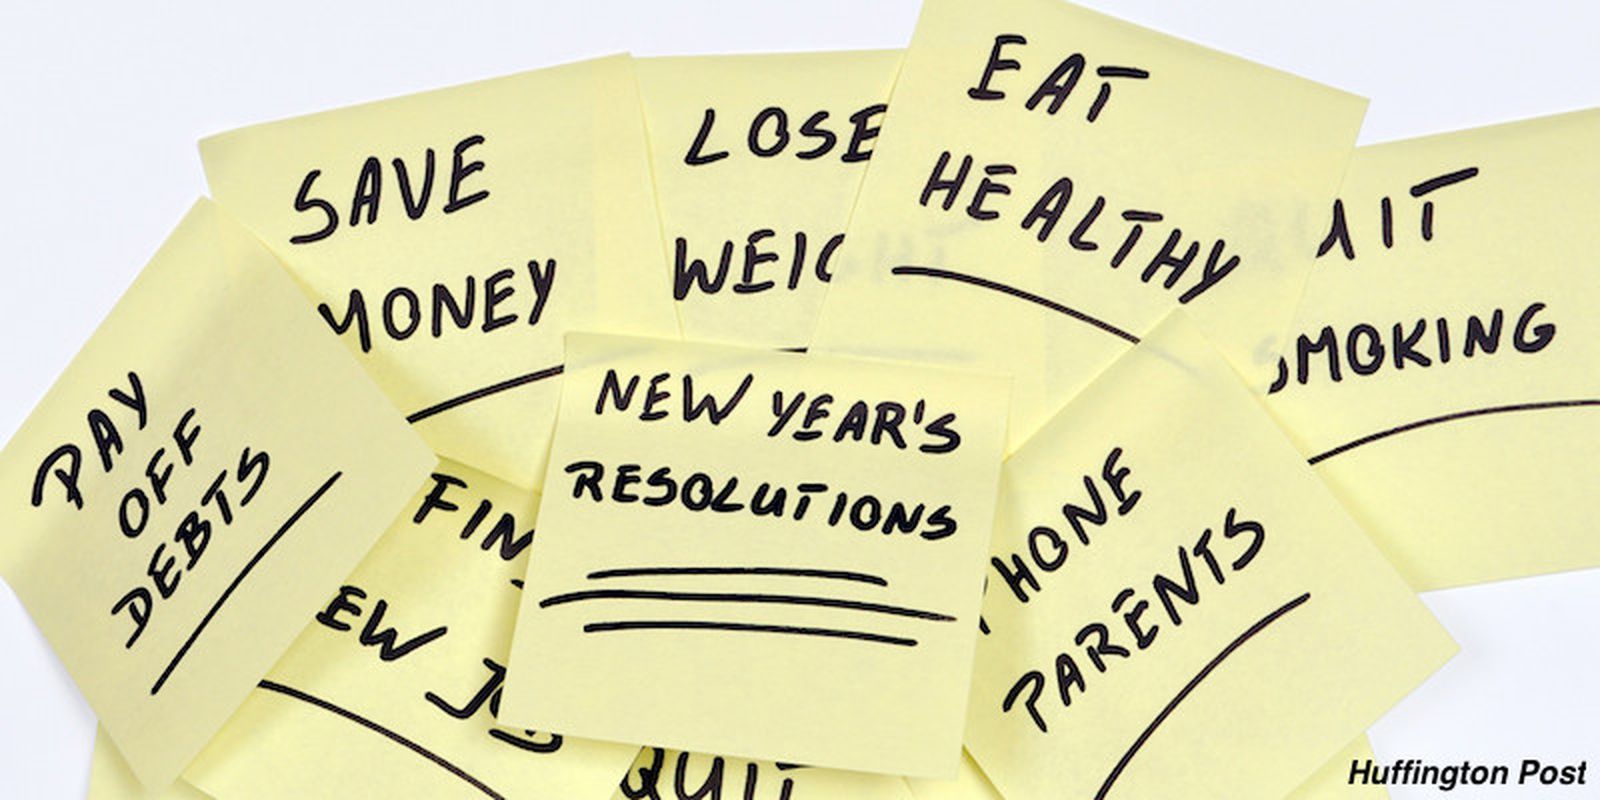 SAVE
MONEY
LOSE
WEIG
EAT
HEALTHY
UIT
SMOKING
PAY
OFF
DEBTS
NEW YEAR'S
RESOLUTIONS
FIN
EW JOB
PHONE
PARENTS
QUIT
Huffington Post